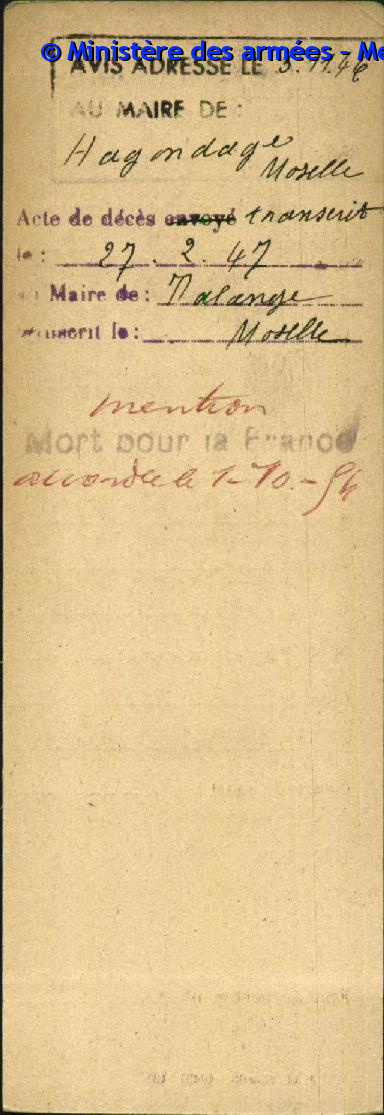 © Ministère des armées - Mé
AVIS ADRESSÉ LE 5.11.46
AU MAIRE DE :
Hagondage
Moselle
Acte de décès envoyé transcrit
le : 27 . 2 . 47
Maire de : Talange
transcrit le :
Moselle
mention
Mort pour la France
accordée le 1-10.-54